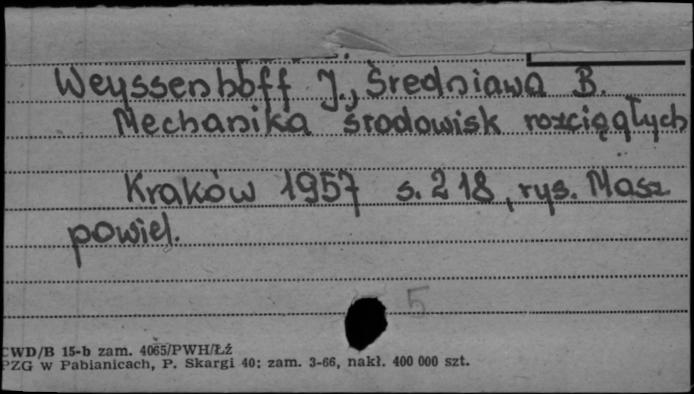 Weyssenhoff J., Średniawa B.
Mechanika środowisk rozciągłych
Kraków 1957 s. 218, rys. Masz
powiel.
5
CWD/B 15-b zam. 4065/PWH/Łź
PZG w Pabianicach, P. Skargi 40; zam. 3-66, nakł. 400 000 szt.